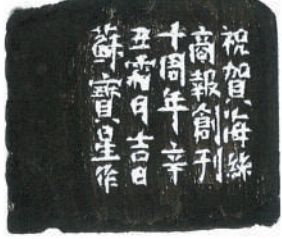 祝賀海絲
商報創刊
十周年辛
丑霜月吉日
蘇寶星作